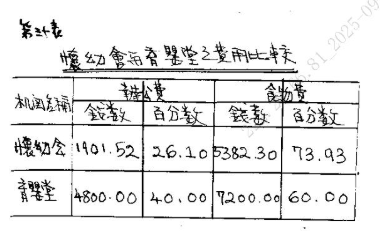 第三十表
懷幼會与育嬰堂之費用比較
机関名稱 辦公費 食物費
錢数 百分数 錢数 百分数
懷幼会 1901.52 26.10 5382.30 73.93
育嬰堂 4800.00 40.00 7200.00 60.00